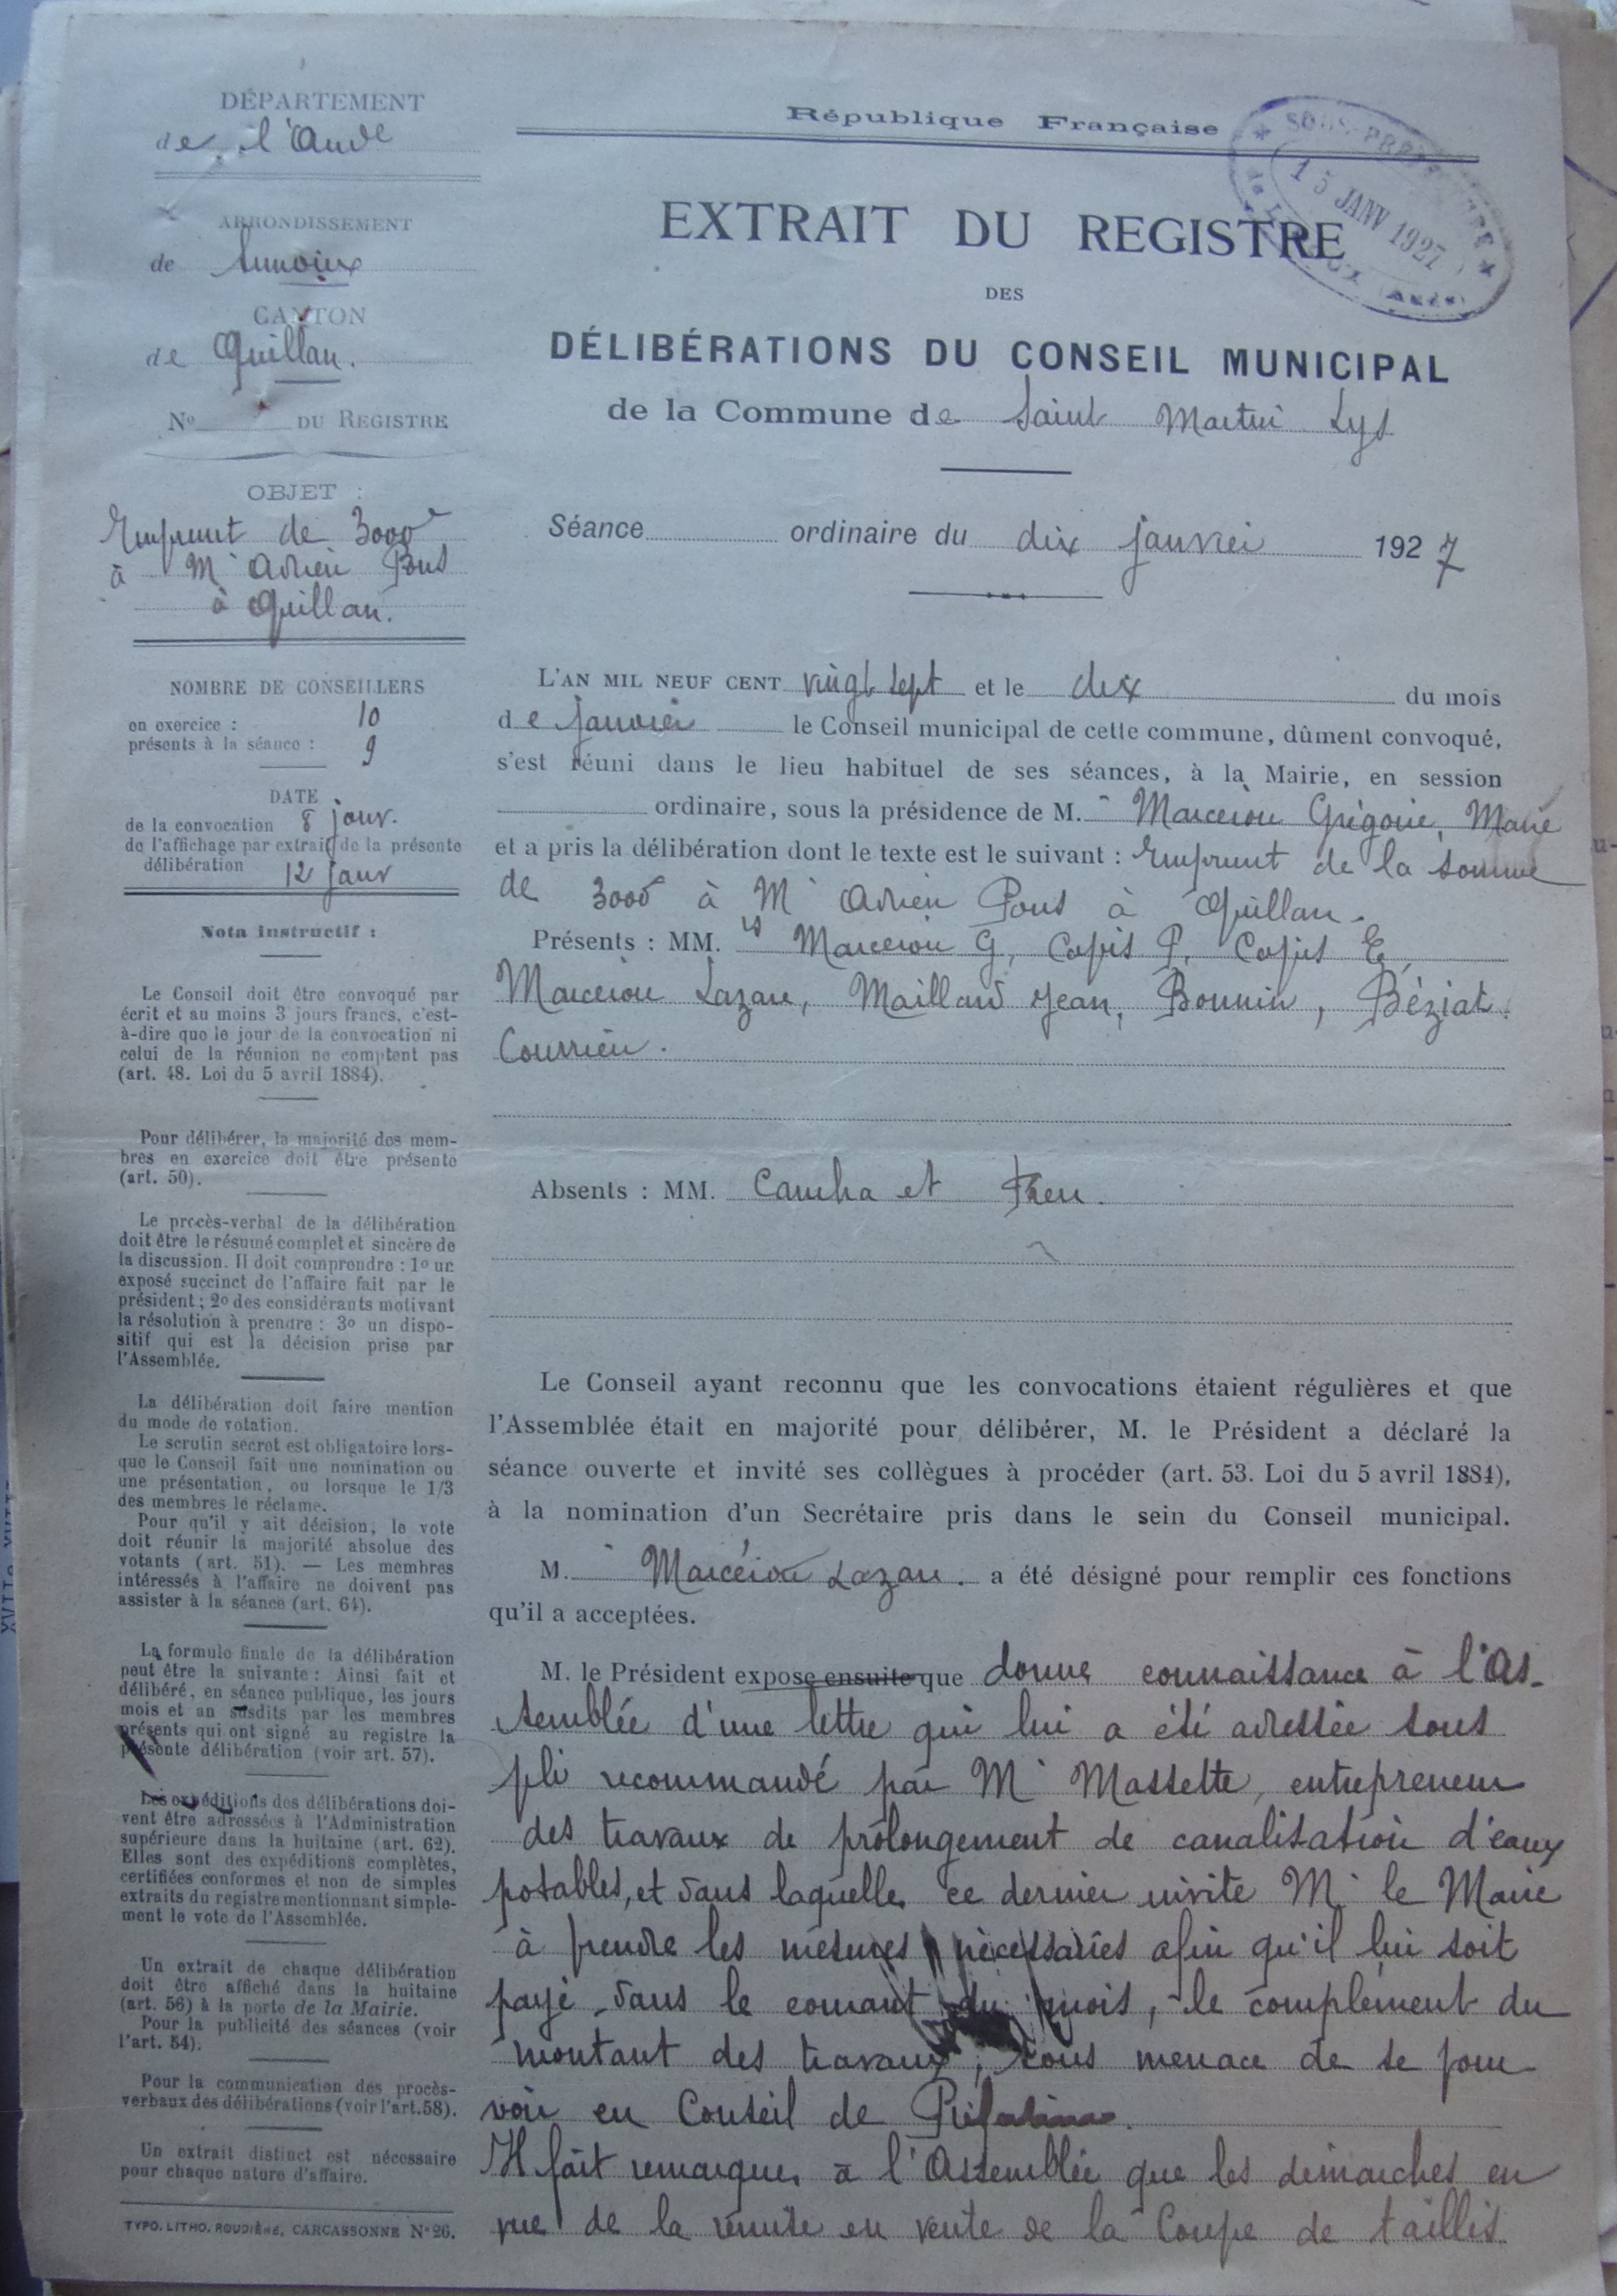 DÉPARTEMENT
de l'Aude
ARRONDISSEMENT
de Limoux
CANTON
de Quillan.
No DU REGISTRE
OBJET :
Emprunt de 3000f
à Mr Adrien Pous
à Quillan.
NOMBRE DE CONSEILLERS
en exercice : 10
présents à la séance : 9
DATE
de la convocation 8 janv.
de l'affichage par extrait de la présente
délibération 12 janv
Nota instructif :
Le Conseil doit être convoqué par
écrit et au moins 3 jours francs, c'est-
à-dire que le jour de la convocation ni
celui de la réunion ne comptent pas
(art. 48. Loi du 5 avril 1884).
Pour délibérer, la majorité des mem-
bres en exercice doit être présente
(art. 50).
Le procès-verbal de la délibération
doit être le résumé complet et sincère de
la discussion. Il doit comprendre : 1o un
exposé succinct de l'affaire fait par le
président ; 2o des considérants motivant
la résolution à prendre : 3o un dispo-
sitif qui est la décision prise par
l'Assemblée.
La délibération doit faire mention
du mode de votation.
Le scrutin secret est obligatoire lors-
que le Conseil fait une nomination ou
une présentation, ou lorsque le 1/3
des membres le réclame.
Pour qu'il y ait décision, le vote
doit réunir la majorité absolue des
votants (art. 51). — Les membres
intéressés à l'affaire ne doivent pas
assister à la séance (art. 64).
La formule finale de la délibération
peut être la suivante : Ainsi fait et
délibéré, en séance publique, les jours
mois et an susdits par les membres
présents qui ont signé au registre la
présente délibération (voir art. 57).
Les expéditions des délibérations doi-
vent être adressées à l'Administration
supérieure dans la huitaine (art. 62).
Elles sont des expéditions complètes,
certifiées conformes et non de simples
extraits du registre mentionnant simple-
ment le vote de l'Assemblée.
Un extrait de chaque délibération
doit être affiché dans la huitaine
(art. 56) à la porte de la Mairie.
Pour la publicité des séances (voir
l'art. 54).
Pour la communication des procès-
verbaux des délibérations (voir l'art.58).
Un extrait distinct est nécessaire
pour chaque nature d'affaire.
TYPO. LITHO. ROUDIÈRE, CARCASSONNE No 26.
République Française
SOUS-PRÉFECTURE
15 JANV 1927
de LIMOUX (AUDE)
EXTRAIT DU REGISTRE
DES
DÉLIBÉRATIONS DU CONSEIL MUNICIPAL
de la Commune de Saint Martin Lys
Séance ordinaire du dix janvier 1927
L'AN MIL NEUF CENT vingt sept et le dix du mois
de janvier le Conseil municipal de cette commune, dûment convoqué,
s'est réuni dans le lieu habituel de ses séances, à la Mairie, en session
ordinaire, sous la présidence de M. Marcerou Grégoire, Maire
et a pris la délibération dont le texte est le suivant : Emprunt de la somme
de 3000f à Mr Adrien Pous à Quillan.
Présents : MM. rs Marcerou G, Capis P, Capis E,
Marcerou Lazare, Maillard Jean, Bounin, Béziat.
Courrieu.
Absents : MM. Caucha et Freu.
Le Conseil ayant reconnu que les convocations étaient régulières et que
l'Assemblée était en majorité pour délibérer, M. le Président a déclaré la
séance ouverte et invité ses collègues à procéder (art. 53. Loi du 5 avril 1884),
à la nomination d'un Secrétaire pris dans le sein du Conseil municipal.
M. Marcérou Lazare. a été désigné pour remplir ces fonctions
qu'il a acceptées.
M. le Président expose ensuite que donne connaissance à l'As-
semblée d'une lettre qui lui a été adressée sous
pli recommandé par Mr Massette, entrepreneur
des travaux de prolongement de canalisation d'eaux
potables, et dans laquelle ce dernier invite Mr le Maire
à prendre les mesures nécessaires afin qu'il lui soit
payé dans le courant du mois, le complément du
montant des travaux, sous menace de se pour
voir en Conseil de Préfecture.
Il fait remarquer à l'Assemblée que les démarches en
vue de la remise en vente de la Coupe de taillis